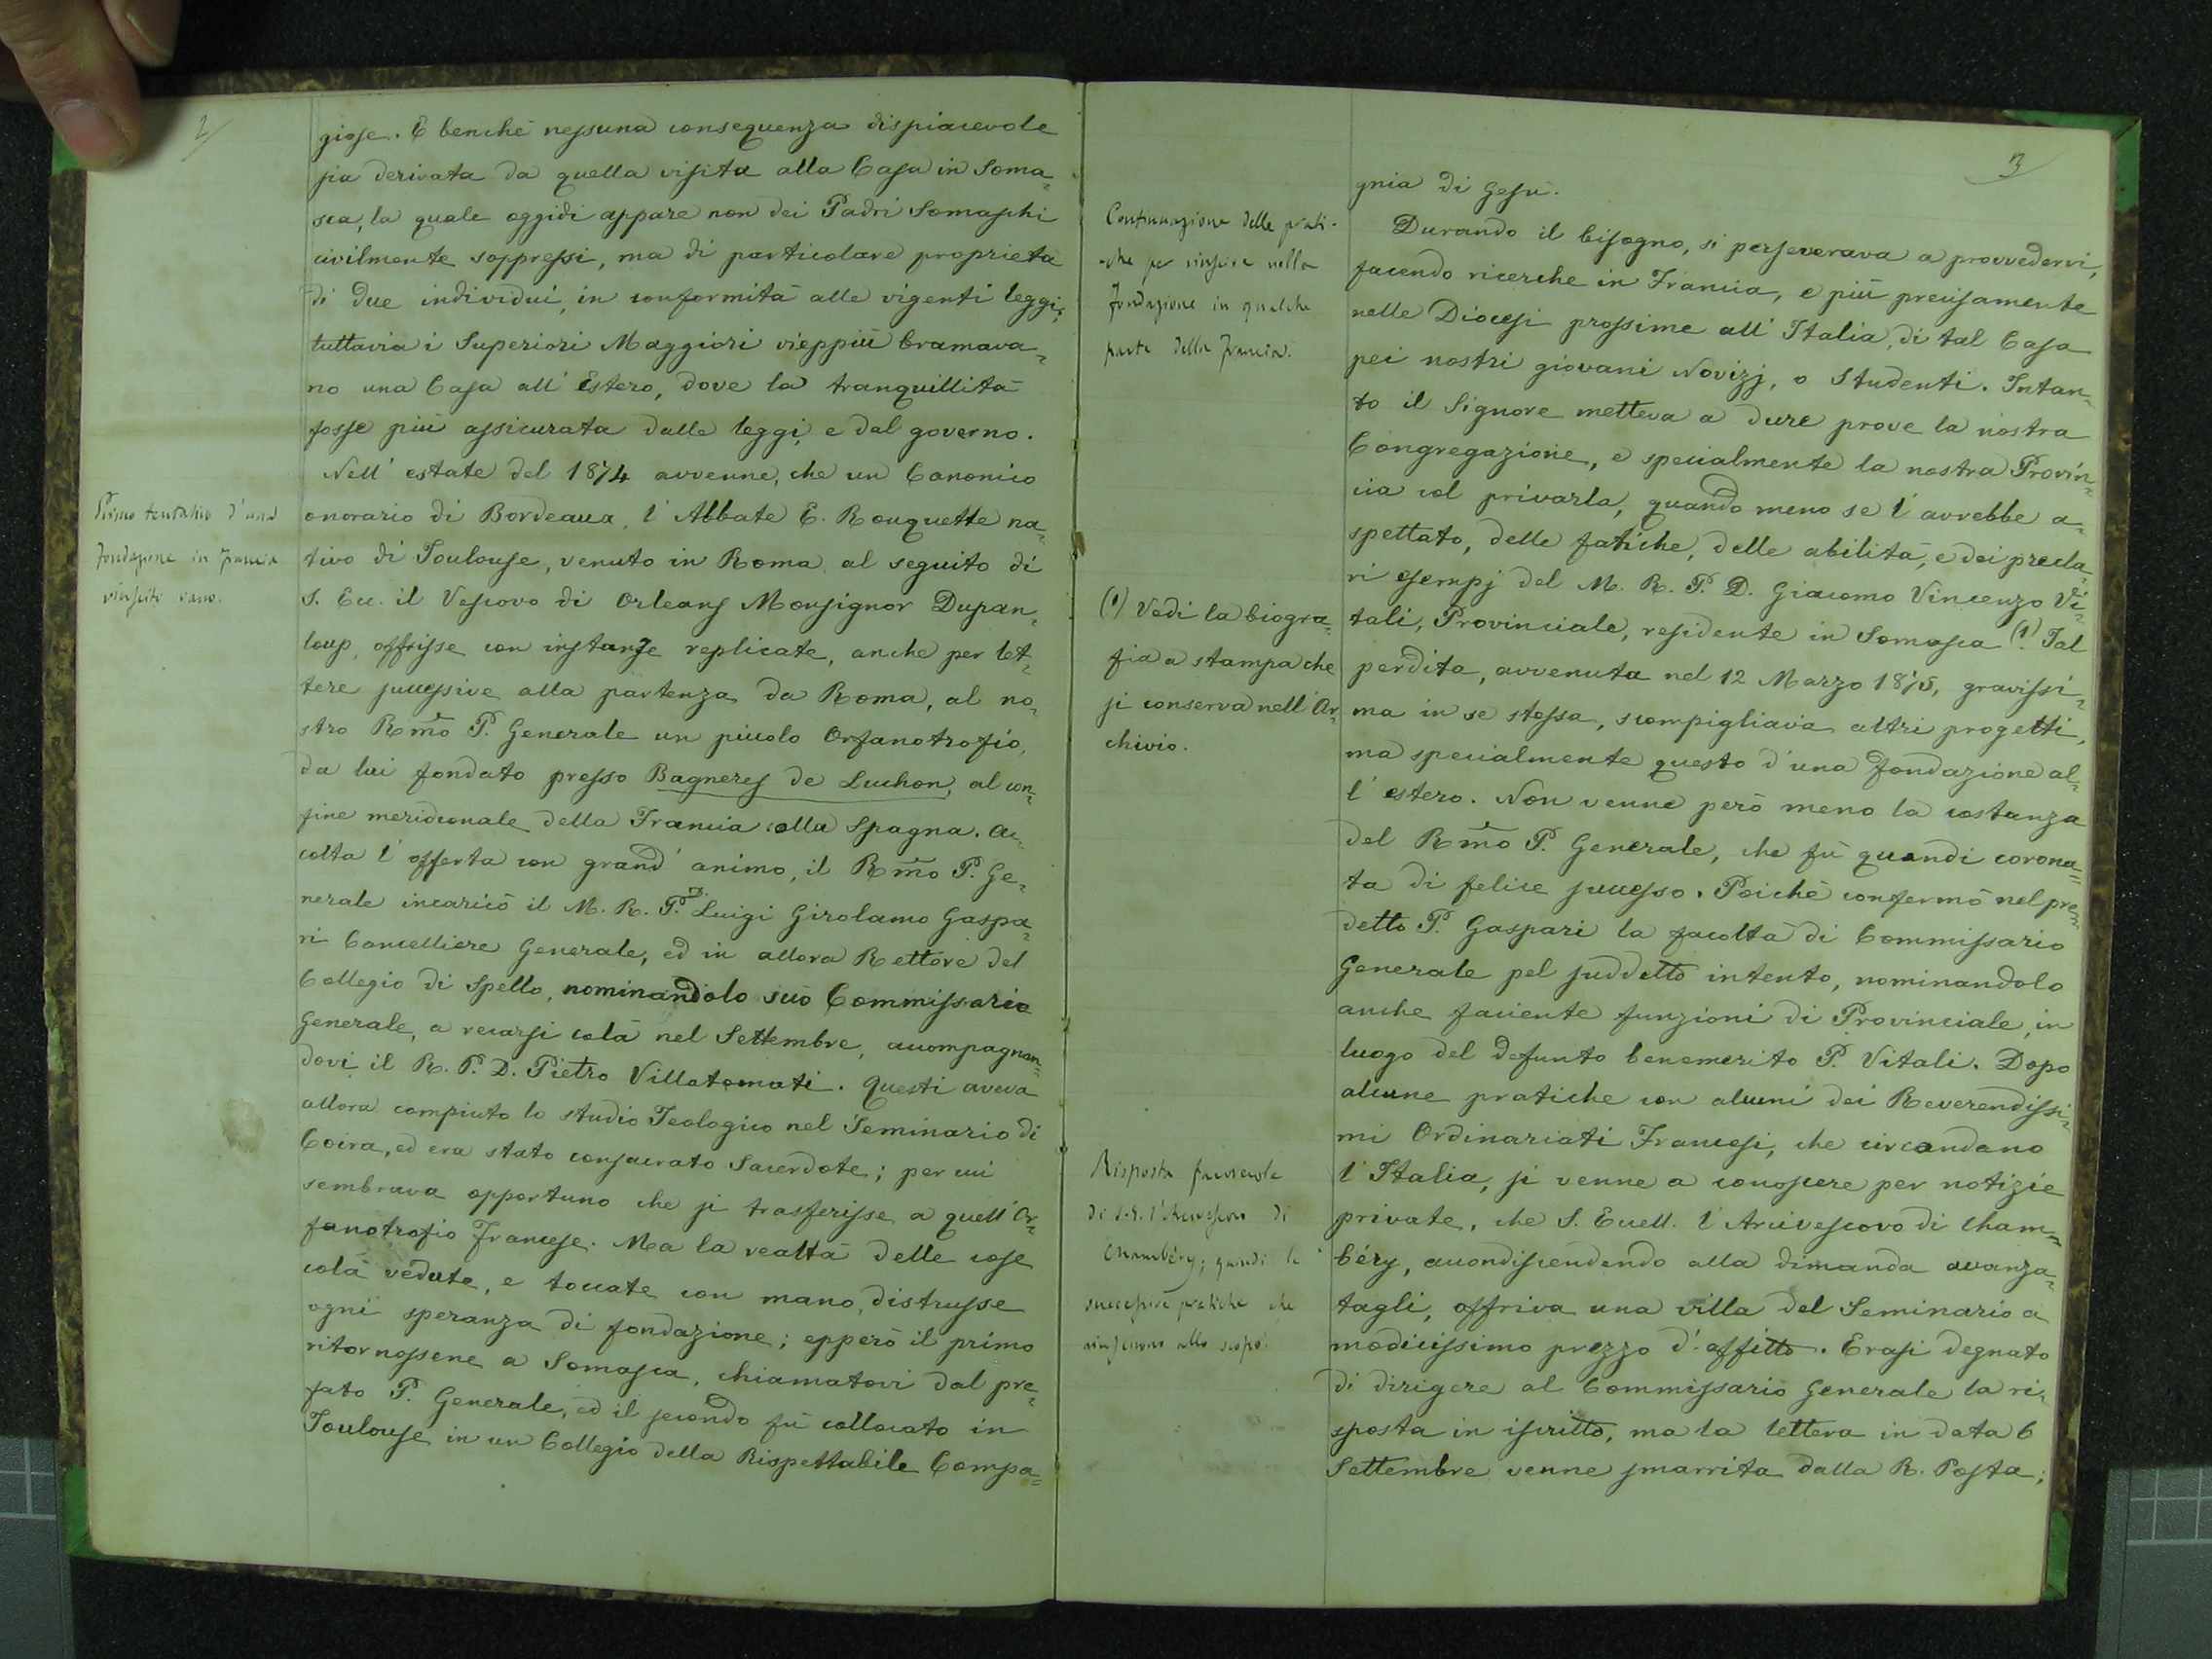 2/
giose. E benché nessuna conseguenza dispiacevole
sia derivata da quella visita alla Casa in Soma=
sca, la quale oggidì appare non dei Padri Somaschi
civilmente soppressi, ma di particolare proprietà
di due individui, in conformità alle vigenti leggi;
tuttavia i Superiori Maggiori vieppiù bramava=
no una Casa all'Estero, dove la tranquillità
fosse più assicurata dalle leggi, e dal governo.
Nell'estate del 1874 avvenne, che un Canonico
onorario di Bordeaux, l'Abbate E. Rouquette na=
tivo di Toulouse, venuto in Roma al seguito di
S. Ecc. il Vescovo di Orleans Monsignor Dupan=
loup, offrisse con instanze replicate, anche per let=
tere successive alla partenza da Roma, al no=
stro Rm̃o P. Generale un piccolo Orfanotrofio,
da lui fondato presso Bagneres de Luchon, al con=
fine meridionale della Francia colla Spagna. Ac=
colta l'offerta con grand'animo, il Rm̃o P. Ge=
nerale incaricò il M. R. P. D. Luigi Girolamo Gaspa=
ri Cancelliere Generale, ed in allora Rettore del
Collegio di Spello, nominandolo suo Commissario
Generale, a recarsi colà nel Settembre, accompagnan=
dovi il R. P. D. Pietro Villatomati. Questi aveva
allora compiuto lo studio Teologico nel Seminario di
Coira, ed era stato consacrato Sacerdote; per cui
sembrava opportuno che si trasferisse a quell'Or=
fanotrofio Francese. Ma la realtà delle cose
colà vedute, e toccate con mano, distrusse
ogni speranza di fondazione; epperò il primo
ritornossene a Somasca, chiamatovi dal pre=
fato P. Generale, ed il secondo fù collocato in
Toulouse in un Collegio della Rispettabile Compa=
Primo tentativo d'una
fondazione in Francia
riuscito vano.
3
gnia di Gesù.
Durando il bisogno, si perseverava a provvedervi,
facendo ricerche in Francia, e più precisamente
nelle Diocesi prossime all'Italia, di tal Casa
pei nostri giovani Novizj, o Studenti. Intan=
to il Signore metteva a dure prove la nostra
Congregazione, e specialmente la nostra Provin=
cia col privarla, quando meno se l'avrebbe a=
spettato, delle fatiche, delle abilità, e dei precla=
ri esempj del M. R. P. D. Giacomo Vincenzo Vi=
tali, Provinciale, residente in Somasca (1). Tal
perdita, avvenuta nel 12 Marzo 1875, gravissi=
ma in se stessa, scompigliava altri progetti,
ma specialmente questo d'una fondazione al=
l'estero. Non venne però meno la costanza
del Rm̃o P. Generale, che fù quandi corona=
ta di felice successo. Poiché confermò nel pre=
detto P. Gaspari la facoltà di Commissario
Generale pel suddetto intento, nominandolo
anche faciente funzioni di Provinciale, in
luogo del defunto benemerito P. Vitali. Dopo
alcune pratiche con alcuni dei Reverendissi=
mi Ordinariati Francesi, che circondano
l'Italia, si venne a conoscere per notizie
private, che S. Eccell. l'Arcivescovo di Cham=
béry, accondiscendendo alla dimanda avanza=
tagli, offriva una villa del Seminario a
modicissimo prezzo d'affitto. Erasi degnato
di dirigere al Commissario Generale la ri=
sposta in iscritto, ma la lettera in data 6
Settembre venne smarrita dalla R. Posta;
Continuazione delle prati-
-che per riuscire nella
fondazione in qualche
parte della Francia.
(1) Vedi la biogra=
fia a stampa che
si conserva nell'Ar=
chivio.
Risposta favorevole
di S. E. l'Arcivescovo di
Chambéry; quindi le
successive pratiche che
riuscirono allo scopo.